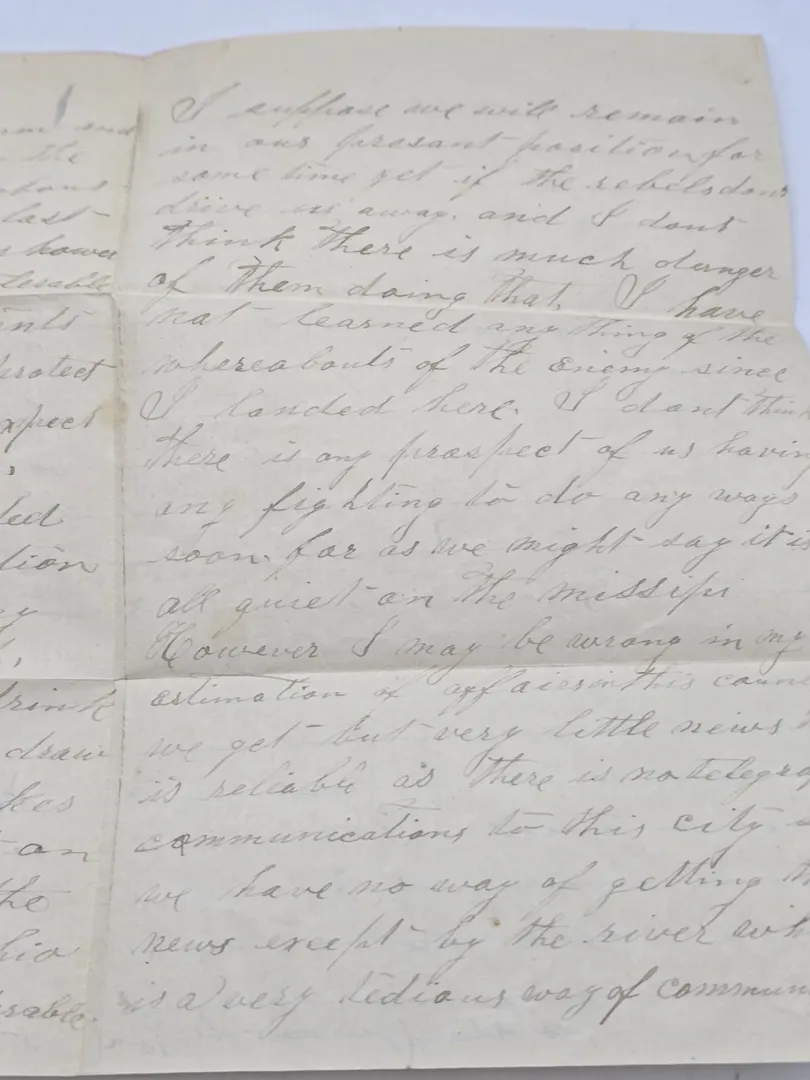 and
the
last
howe
tolerable
protect
expect
tion
drink
draw
kes
on
the
hio
rable.
I suppose we will remain
in our presant position for
some time yet if the rebels dont
drive us away. and I dont
think there is much danger
of them doing that, I have
not learned any thing of the
whereabouts of the Enemy since
I landed here. I dont think
there is any prospect of us havin
any fighting to do any ways
soon. for as we might say it is
all quiet on the missipi
However I may be wrong in my
estimation of affairs in this coun
we get but very little news
is reliable as there is no telegra
communications to this city
we have no way of getting th
news except by the river wh
is a very tedious way of commun